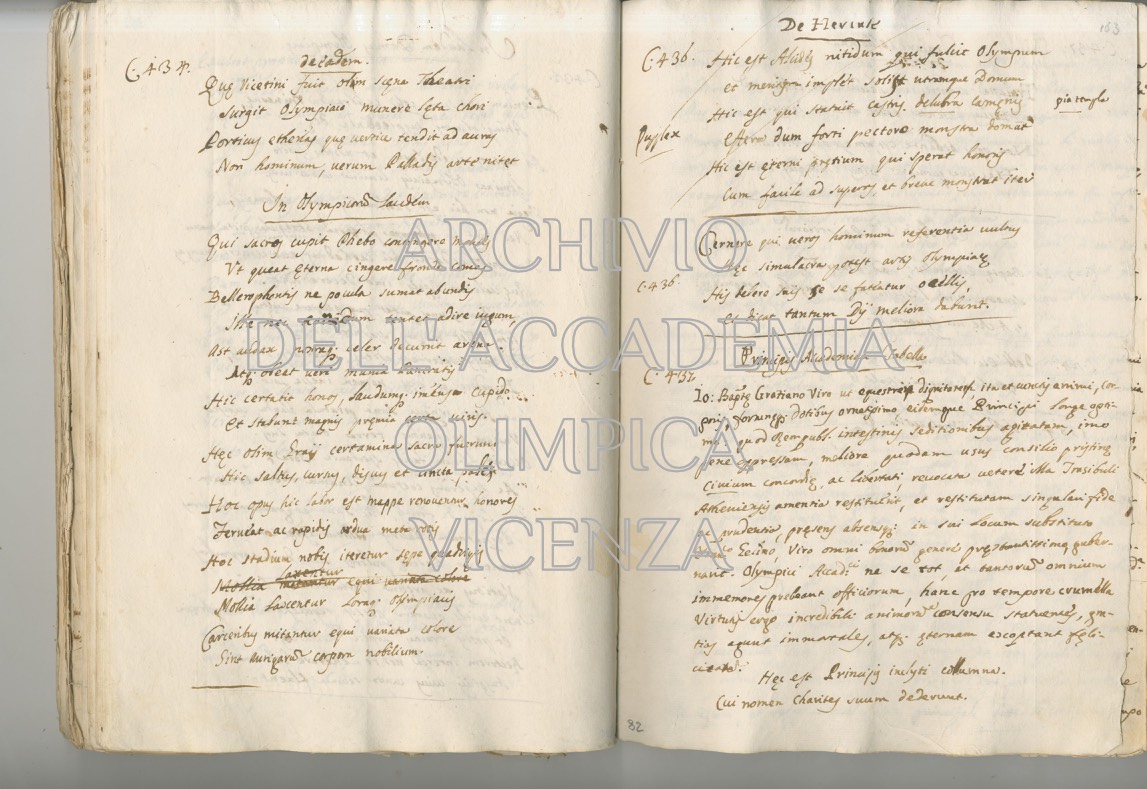 C. 434.
de eadem.
Quę Vicetini fuit olim scęna Theatri
Surgit Olympiaco munere lęta chori
Porticus etherias quę vertice tendit ad auras
Non hominum, verum Palladis arte nitet
In Olympicorũ laudem
Qui sacros cupit Phebo contingere montes
Vt queat ęterna cingere fronde comas
Bellerophontis ne pocula sumat abundis
iugum,
Ast audax celer decurrit arena
Hic certatio honos, laudumq; imensa cupido
Et stabunt magnis pręmia certa viris.
Hęc olim Graijs certamina sacra fuerunt
Hic saltus, cursus, discus et uncta palęs
Hoc opus hic labor est mappe renoventur honores
Ferueat ac rapidis ardua meta rotis
Hoc stadium nobis iteretur sępe quadrigis
Mollia laxentur equi variata colore
Mollia laxentur loraq; Olympiacis
Carceribus mitantur equi variata colore
Sint Aurigarũ corpora nobilium.
De Hercule
163
C. 436.
Hic est Alcides nitidum qui fulcit Olympum
et menstra implet solis utramque Domum
Hic est qui statuit castris delubra Camęnis
pia templa
Duplex
Effera dum forti pectore monstra domat
Hic est ęterni pretium qui sperat honoris
Cum facile ad superos et breve monstrat iter
Cernere qui veros hominum referentia vultus
Hęc simulacra potest artis Olympiacę
C. 436.
His se fatiatur ocellis,
et dicat tantum Dij meliora dabunt.
Principis Academica Tabella
C. 437.
Io: Baptę Gratiano Viro ut equestris dignitateq, ita et cunctis animi, cor-
poris, fortunęq; Dotibus ornatissimo, eidemque Principi longe opti-
mo, quod Rempubl. intestinis seditionibus agitatam, imo
pene oppressam, meliore quodam usus consilio pristinę
civium concordię, ac libertati revocata veteri illa Trasibuli
Atheniensis amentia restituerit, et restitutam singulari fide
ac prudentia, pręsens absensq; in sui locum substituto
Viro omni bonorũ genere pręstantissimo guber-
narit. Olympici Accad.ci ne se tot, et tantorũ omnium
immemores prebeant officiorum, hanc pro tempore
Virtutis ergo incredibili animorũ consensu statuentes, gra-
tias agunt immortales, atq; ęternam exoptant fęli-
citatẽ.
Hęc est Principis inclyti columna.
Cui nomen Charites suum dederunt.
82
ARCHIVIO
DELL'ACCADEMIA
OLIMPICA,
VICENZA